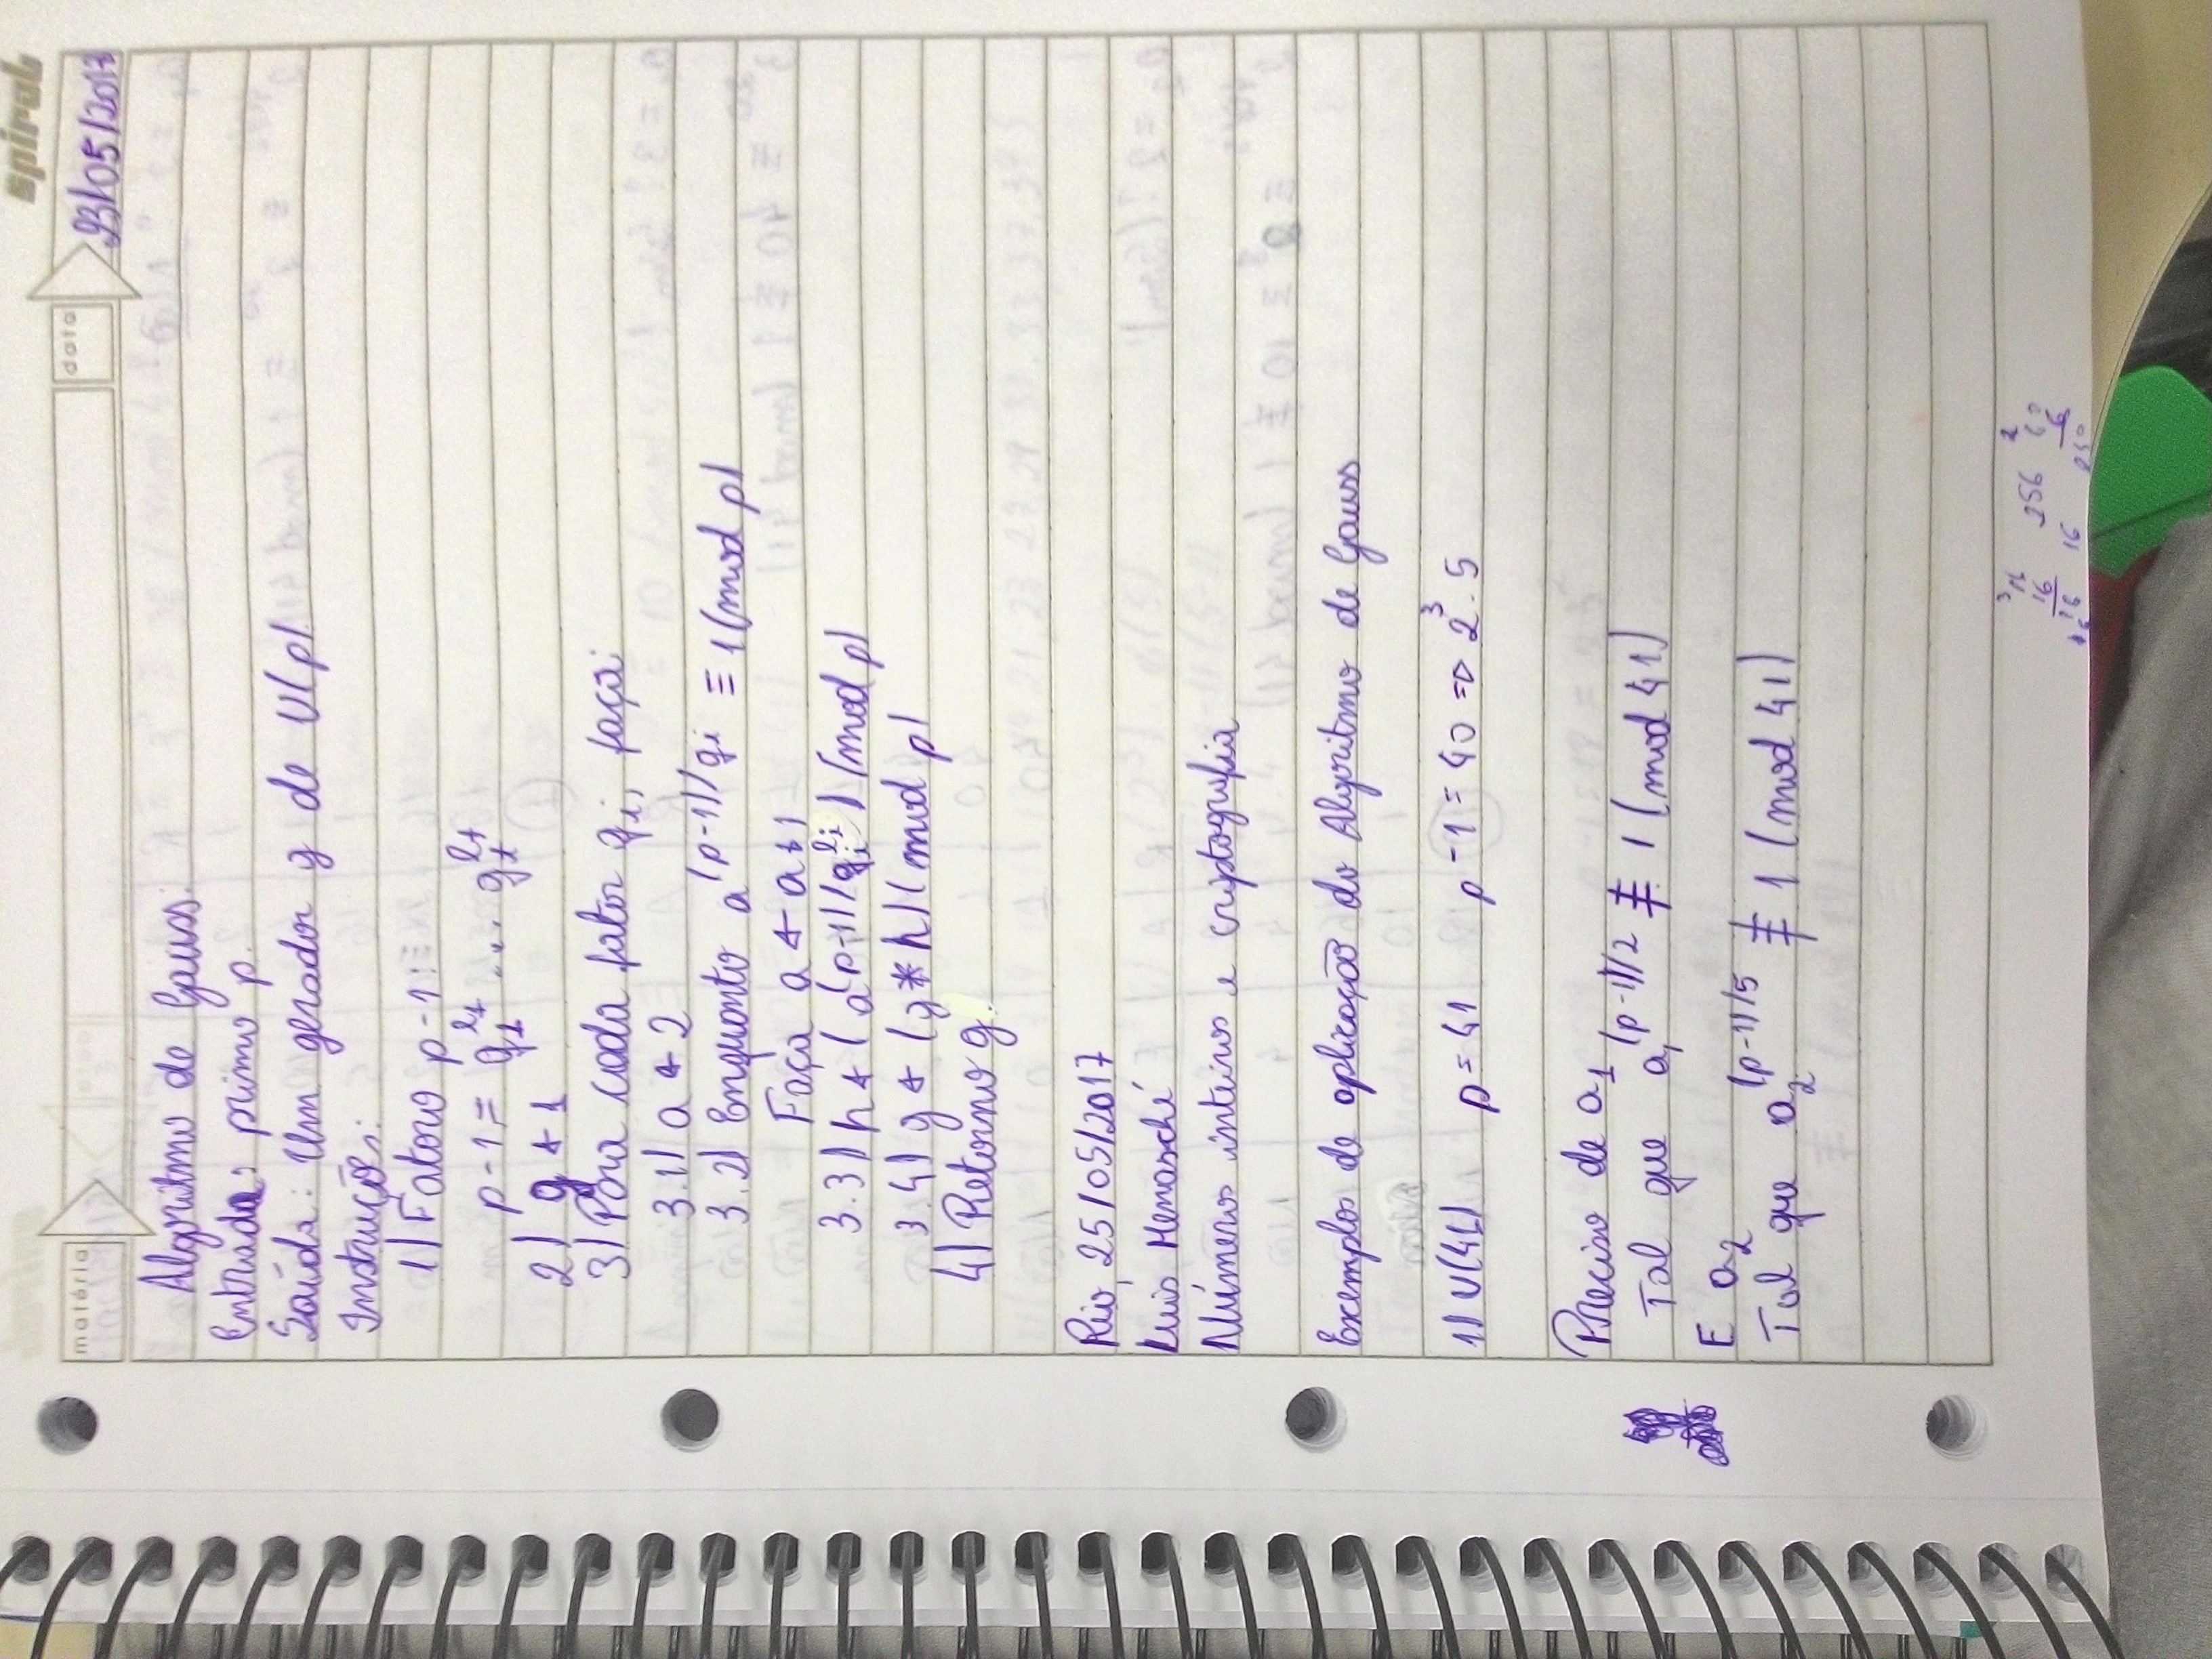 spiral
matéria
data
23/05/2017
Algoritmo de Gauss:
Entrada: primo p.
Saída: Um gerador g de U(p).
Instruções:
1) Fatoro p-1:
p-1 = q₁^e₁ ... qₜ^eₜ
2) g ← 1
3) Para cada fator qᵢ, faça:
3.1) a ← 2
3.2) Enquanto a^(p-1)/qᵢ ≡ 1 (mod p)
Faça a ← a+1
3.3) h ← (a^(p-1)/qᵢ^eᵢ) (mod p)
3.4) g ← (g*h) (mod p)
4) Retorno g.
Rio, 25/05/2017
Luis Menasché
Números inteiros e criptografia
Exemplos de aplicação do Algoritmo de Gauss
1) U(41) p = 41 p-1 = 40 => 2³.5
Preciso de a₁
Tal que a₁^(p-1)/2 ≢ 1 (mod 41)
E a₂
Tal que a₂^(p-1)/5 ≢ 1 (mod 41)
16
256
16